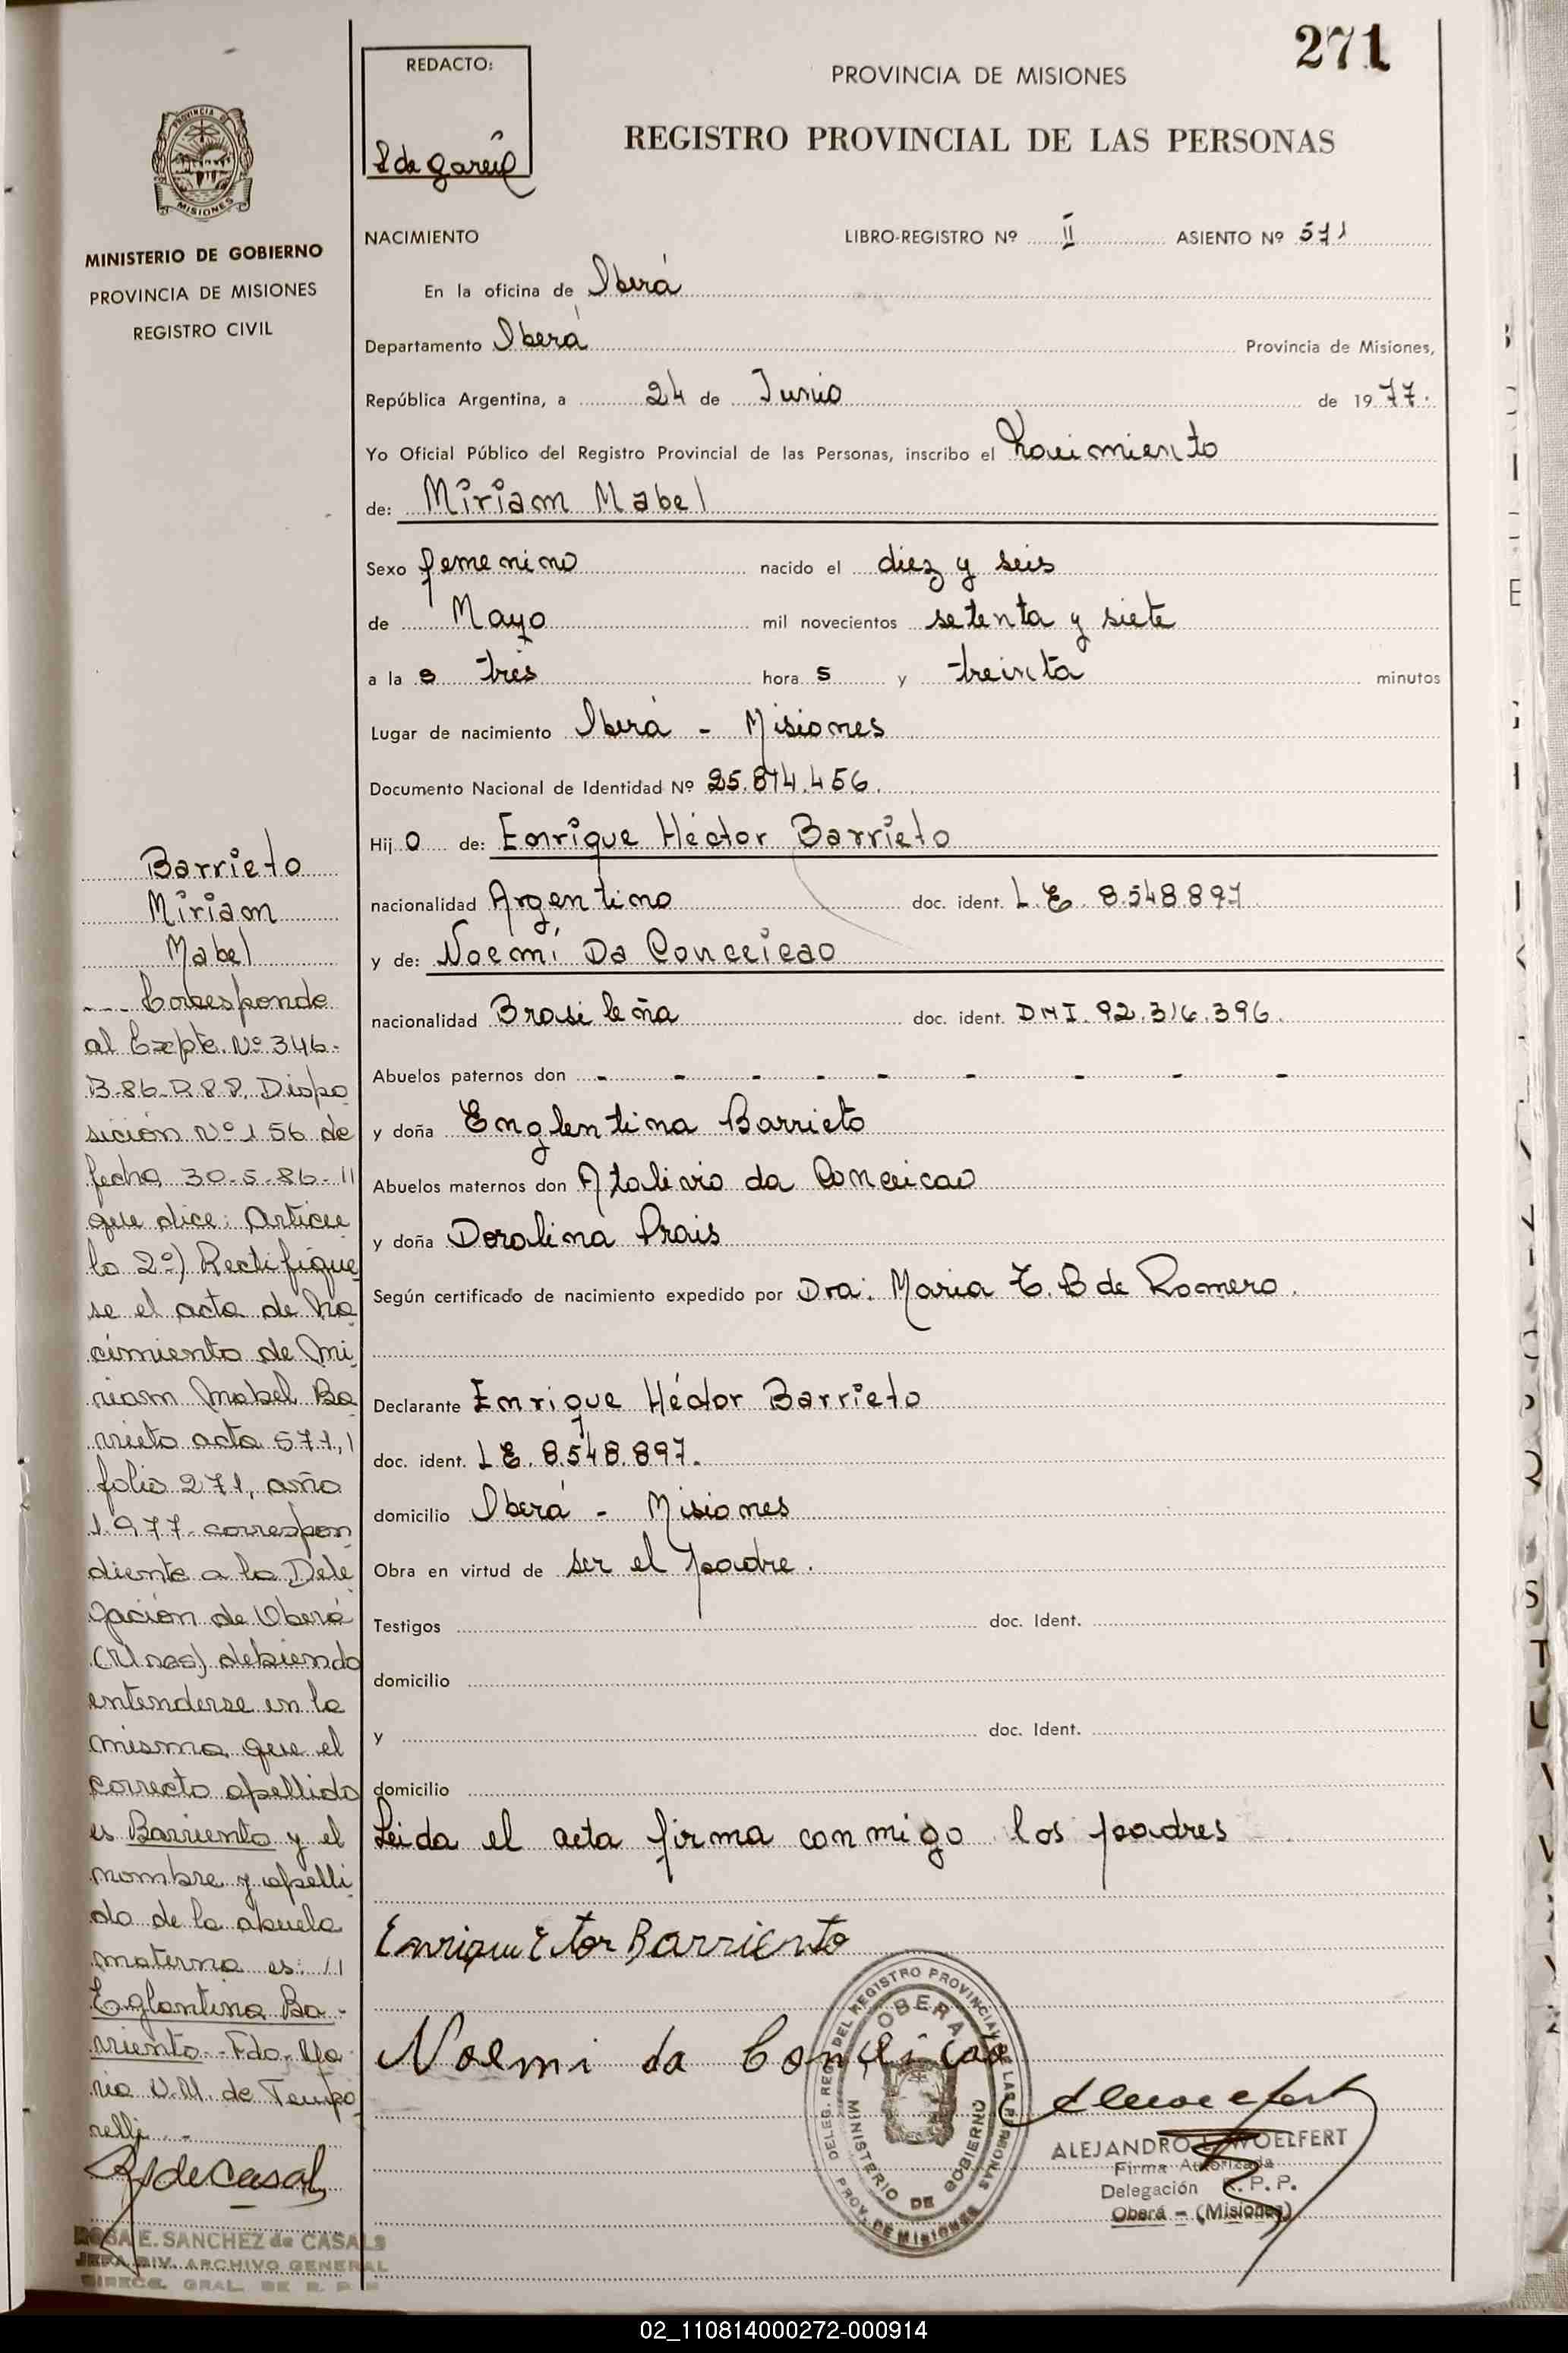 271
REDACTO:
PROVINCIA DE MISIONES
REGISTRO PROVINCIAL DE LAS PERSONAS
PROVINCIA DE
MISIONES
MINISTERIO DE GOBIERNO
PROVINCIA DE MISIONES
REGISTRO CIVIL
NACIMIENTO LIBRO-REGISTRO Nº II ASIENTO Nº 571
En la oficina de Oberá
Departamento Oberá Provincia de Misiones,
República Argentina, a 24 de Junio de 1977.
Yo Oficial Público del Registro Provincial de las Personas, inscribo el Nacimiento
de: Miriam Mabel
Sexo femenino nacido el diez y seis
de Mayo mil novecientos setenta y siete
a la s tres hora s y treinta minutos
Lugar de nacimiento Oberá - Misiones
Documento Nacional de Identidad Nº 25.874.456.
Hij o de: Enrique Héctor Barrieto
nacionalidad Argentino doc. ident. L.E. 8.548.897.
y de: Noemí Da Conceicao
nacionalidad Brasileña doc. ident. DNI. 92.316.396.
Abuelos paternos don - - - - - - - - -
y doña Englentina Barrieto
Abuelos maternos don Atalivio da Conceicao
y doña Doralina Prais
Según certificado de nacimiento expedido por Dra: Maria T. B de Romero.
Declarante Enrique Héctor Barrieto
doc. ident. L E. 8.548.897.
domicilio Oberá - Misiones
Obra en virtud de ser el padre.
Testigos doc. Ident.
domicilio
y doc. Ident.
domicilio
Leida el acta firma conmigo los padres
Enrique Ector Barriento
Noemi da Conceicao
DELEG. REG. DEL REGISTRO PROVINCIAL DE LAS PERSONAS
OBERA
MINISTERIO DE GOBIERNO
PROV. DE MISIONES
ALEJANDRO L. WOELFERT
Firma Autorizada
Delegación R. P. P.
Oberá - (Misiones)
Barrieto
Miriam
Mabel
---- Corresponde
al Expte. Nº 346-
B-86-D.88. Dispo
sición Nº 156 de
fecha 30-5-86-11
que dice: Artícu
lo 2º) Rectifíque
se el acta de Na
cimiento de Mi
riam Mabel Ba
rrieto acta 571,1
folio 271, año
1977 correspon
diente a la Dele
gación de Oberá
(Mnes) debiendo
entenderse en la
misma que el
correcto apellido
es Barriento y el
nombre y apelli
do de la abuela
materna es: 11
Eglantina Ba-
rriento - Fdo. Ma
ria V.M. de Tempo
relli. -
R S de Casal
ROSA E. SANCHEZ de CASALS
JEFA DIV. ARCHIVO GENERAL
DIRECC. GRAL. DE R. P. P.
02_110814000272-000914